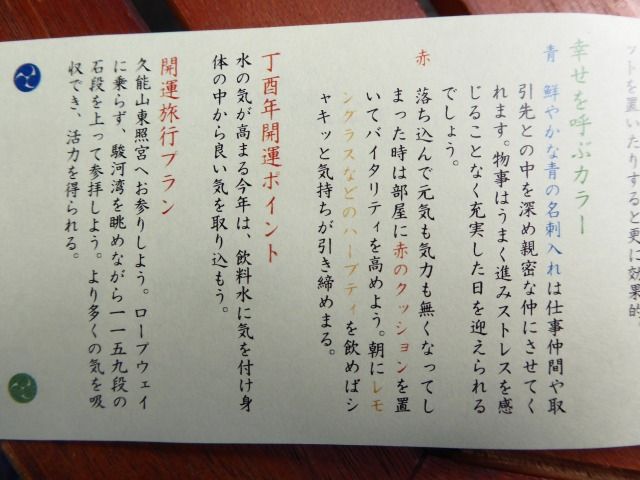 ットを置いたりすると更に効果的
幸せを呼ぶカラー
青　鮮やかな青の名刺入れは仕事仲間や取
引先との中を深め親密な仲にさせてく
れます。物事はうまく進みストレスを感
じることなく充実した日を迎えられる
でしょう。
赤　落ち込んで元気も気力も無くなってし
まった時は部屋に赤のクッションを置
いてバイタリティを高めよう。朝にレモ
ングラスなどのハーブティを飲めばシ
ャキッと気持ちが引き締めまる。
丁酉年開運ポイント
水の気が高まる今年は、飲料水に気を付け身
体の中から良い気を取り込もう。
開運旅行プラン
久能山東照宮へお参りしよう。ロープウェイ
に乗らず、駿河湾を眺めながら一一五九段の
石段を上って参拝しよう。より多くの気を吸
収でき、活力を得られる。